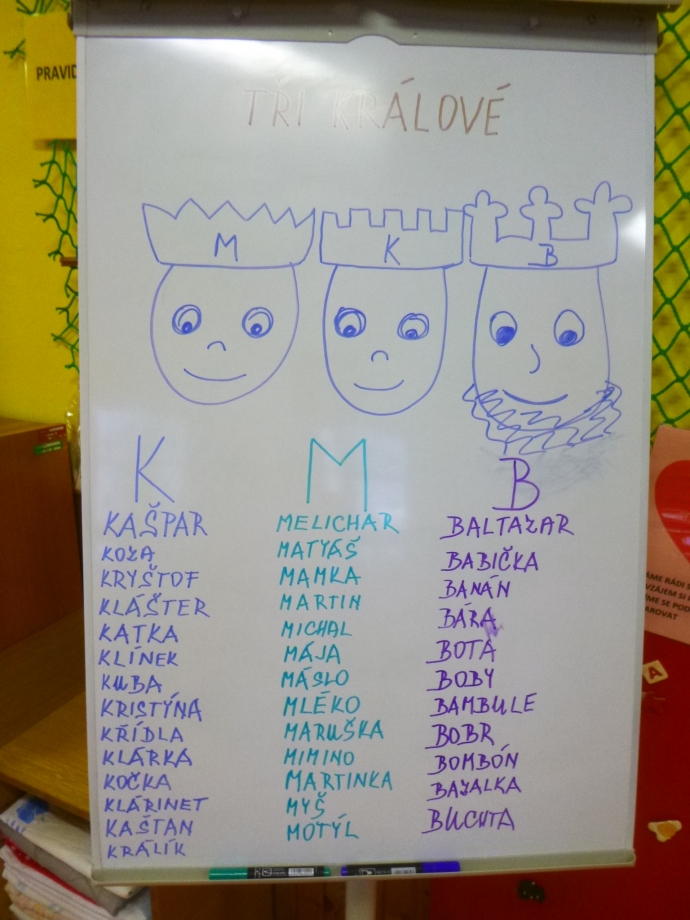 PRAVID
TŘI KRÁLOVÉ
M
K
B
K
KAŠPAR
KOZA
KRYŠTOF
KLÁŠTER
KATKA
KLÍNEK
KUBA
KRISTÝNA
KŘÍDLA
KLÁRKA
KOČKA
KLARINET
KAŠTAN
KRÁLÍK
M
MELICHAR
MATYÁŠ
MAMKA
MARTIN
MICHAL
MÁJA
MÁSLO
MLÉKO
MARUŠKA
MIMINO
MARTINKA
MYŠ
MOTÝL
B
BALTAZAR
BABIČKA
BANÁN
BÁRA
BOTA
BOBY
BAMBULE
BOBR
BOMBÓN
BAZALKA
BUCHTA
ÁME RÁDI
VZÁJEM SI
ME SE POD
AROVAT
A